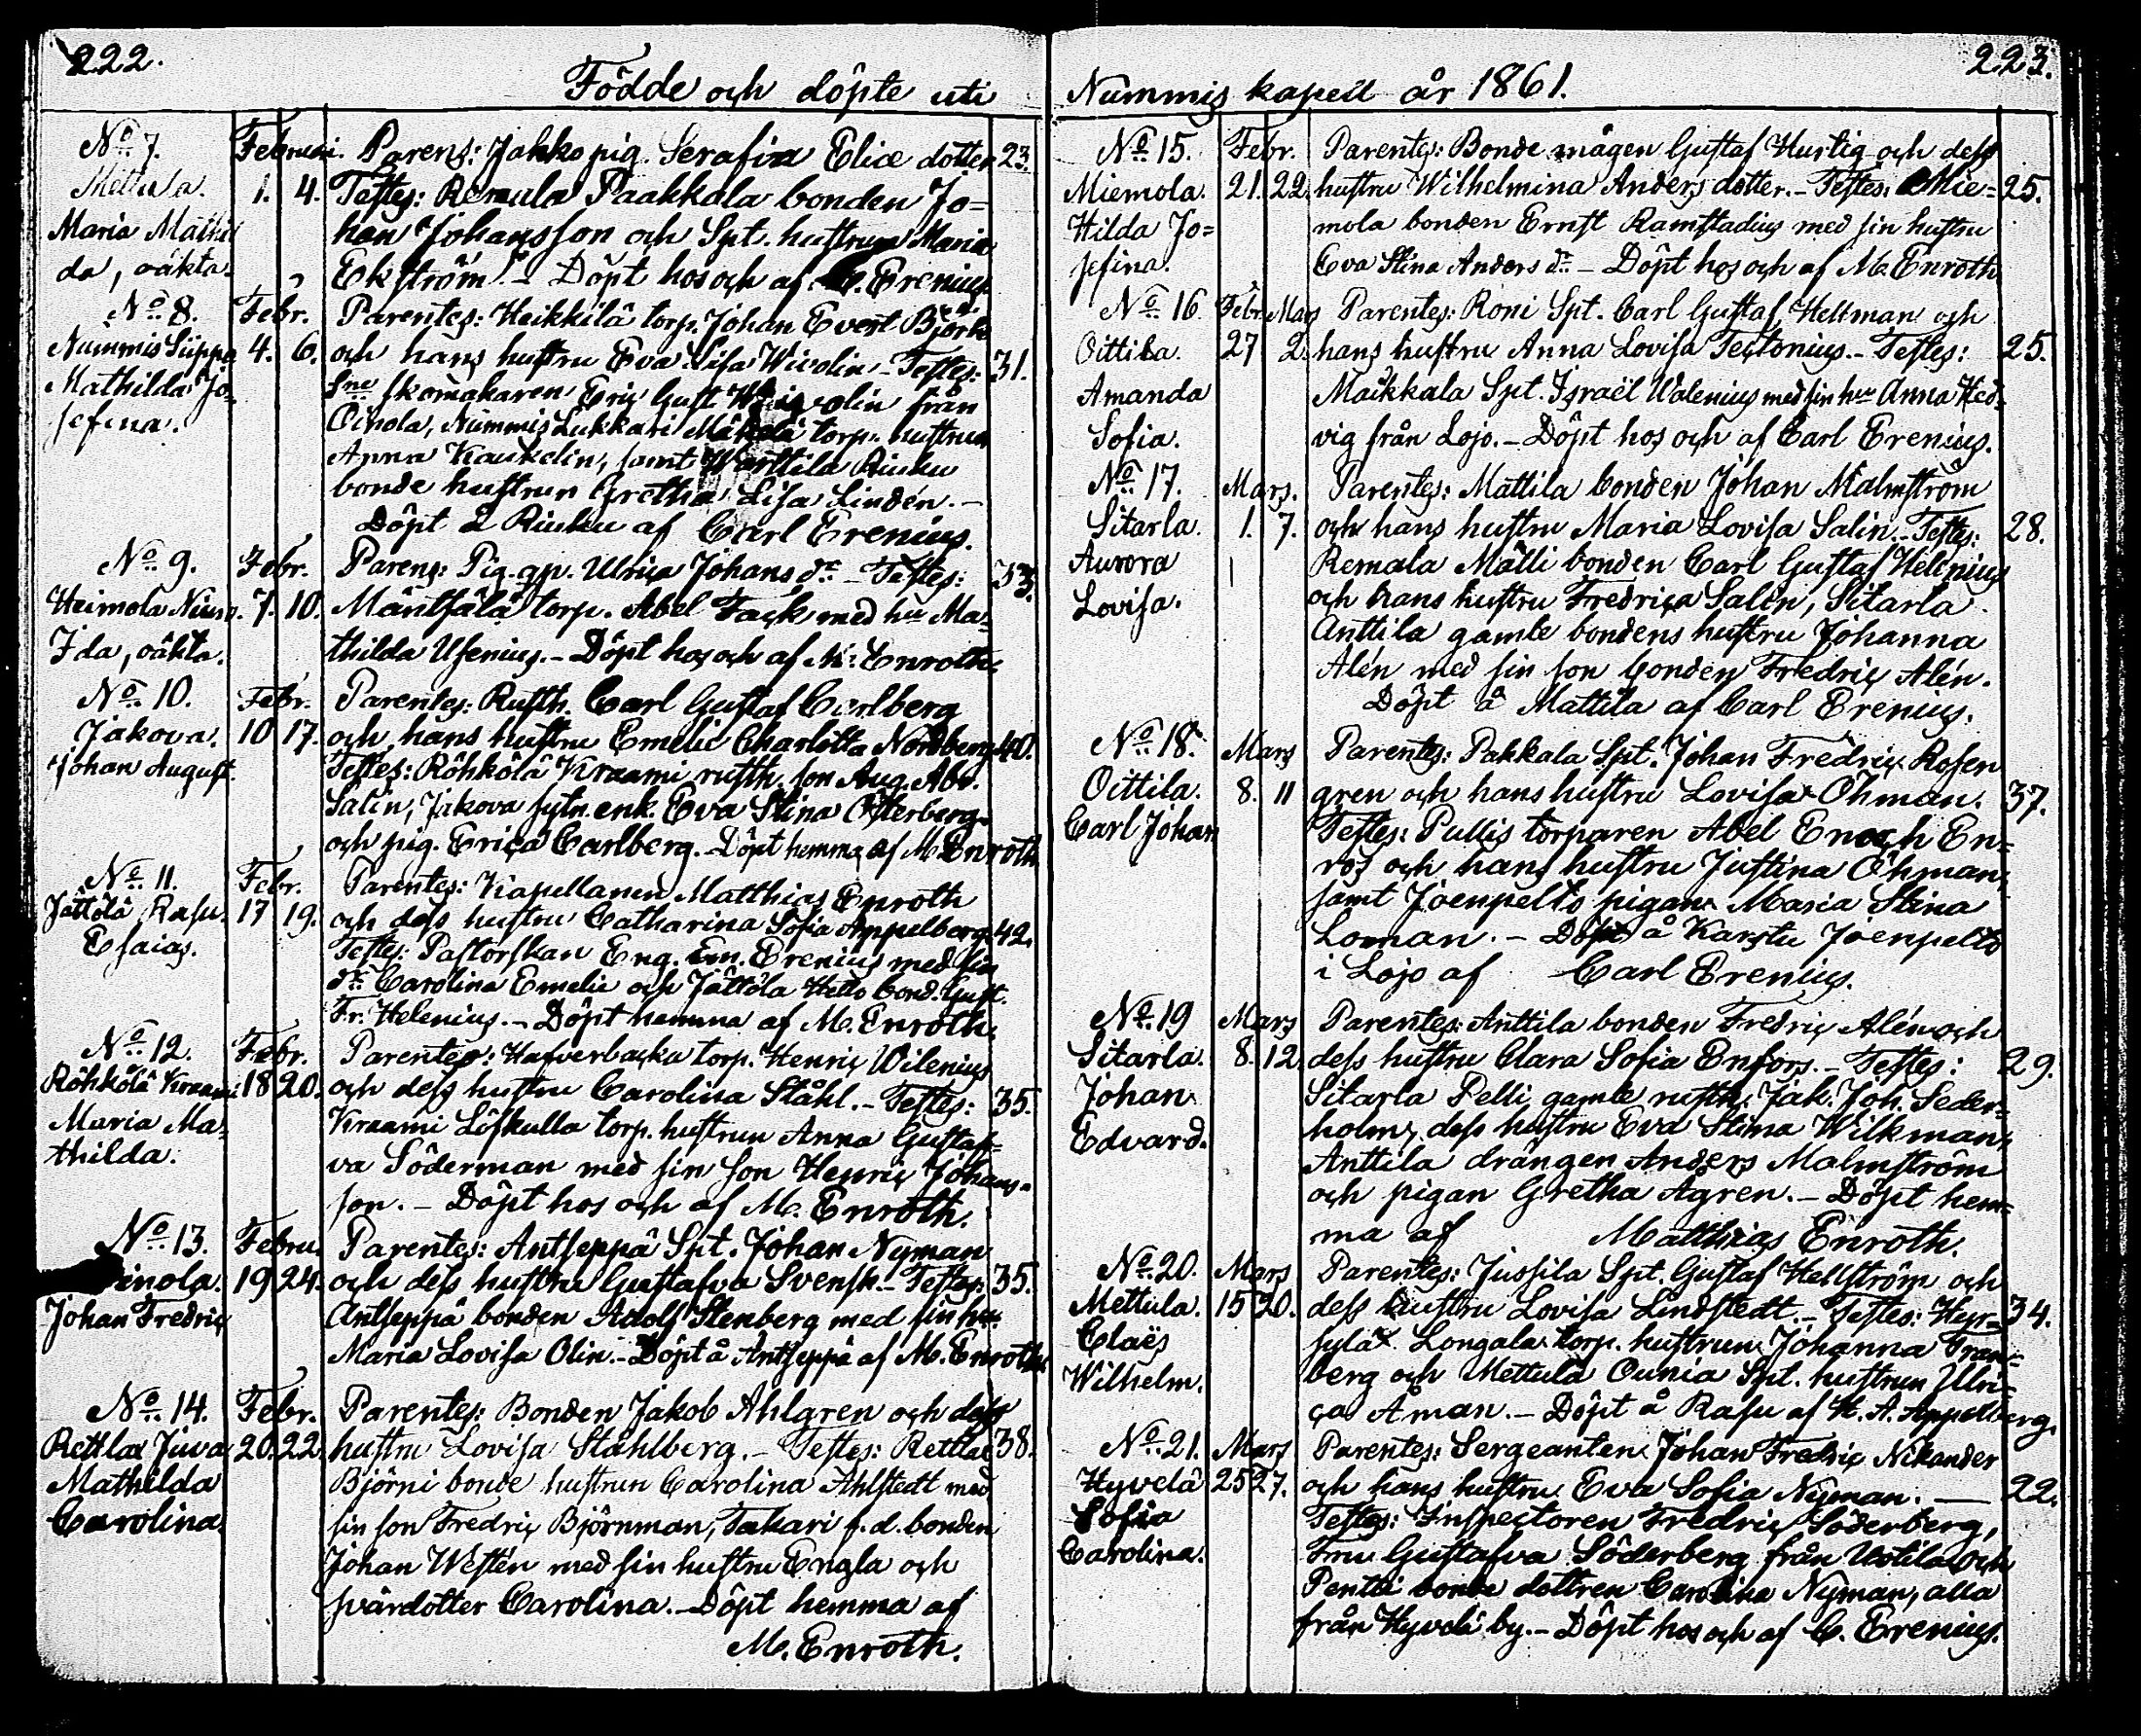 222.
Födde och döpte uti
No 7. Februari. Parens: Jakko pig. Serafia Elice dotter 23.
Mettula. 1. 4. Testes: Remula Paakkala bonden Jo=
Maria Mathil han Johansson och Spt. hustrun Maria
da, oäkta. Ekström. – Döpt hos och af C. Erenius.
No 8. Febr. Parentes: Heikkilä torp. Johan Evert Björk
Nummis Siippo 4. 6. och hans hustru Eva Lisa Wicolin – Testes: 31.
Mathilda Jo= Sne skomakaren Eric Gust. från
sefina. Oinola, Nummis Lukkari Mäkelä torp. hustrun
Anna Kaukelin, samt Warttila Riuku
bonde hustrun Gretha Lisa Lindén. –
Döpt å Riuku af Carl Erenius.
No 9. Febr. Parens: Pig. gp. Ulrica Johans dr – Testes: 33.
Heimola 7. 10. Mäntsälä torp. Abel Fack med hu Ma=
Ida, oäkta. thilda Usenius. – Döpt hos och af M. Enroth.
No 10. Febr. Parentes: Rusth. Carl Gustaf Carlberg
Jakova. 10 17. och hans hustru Emelie Charlotta Nordberg 40.
Johan August. Testes: Röhkölä Kraami rusth. son Aug. Abr.
Salin, Jakova sytn. enk. Eva Stina Österberg
och pig. Erica Carlberg. – Döpt hemma af M. Enroth
No 11. Febr. Parentes: Kapellanen Matthias Enroth
Jättölä Rasu. 17 19. och dess hustru Catharina Sofia Appelberg. 42.
Esaias. Testes: Pastorskan Eng. Em. Erenius med sin
dr Carolina Emelie och Jättölä Hello bond. Gust.
Fr. Helenius. – Döpt hemma af M. Enroth.
No 12. Febr. Parentes: Hafverbacka torp. Henric Wilenius
Röhkölä Kraami 18 20. och dess hustru Carolina Ståhl. – Testes: 35.
Maria Ma= Kraami Löfkulla torp. hustrun Anna Gustaf=
thilda. va Söderman med sin son Henric Johans=
son. – Döpt hos och af M. Enroth.
No 13. Febru. Parentes: Antseppä Spt. Johan Nyman
inola. 19 24. och dess hustru Gustafva Svensk. – Testes: 35.
Johan Fredric Antseppä bonden Adolf Stenberg med sin hu
Maria Lovisa Olin. – Döpt å Antseppä af M. Enroth.
No 14. Febr. Parentes: Bonden Jakob Ahlgren och dess
Rettlax Juva 20. 22. hustru Lovisa Ståhlberg. – Testes: Rettlax 38.
Mathilda Björni bonde hustrun Carolina Ahlstedt med
Carolina. sin son Fredric Björnman, Takari f. d. bonden
Johan Westén med sin hustru Engla och
svärdotter Carolina. – Döpt hemma af
M. Enroth.
223.
Nummis kapell år 1861.
No 15. Febr. Parentes: Bonde mågen Gustaf Hurtig och dess
Miemola. 21. 22. hustru Wilhelmina Anders dotter. – Testes: Mie= 25.
Hilda Jo= mola bonden Ernst Ramstadius med sin hustru
sefina. Eva Stina Anders dr – Döpt hos och af M. Enroth
No 16. Febr. Mars Parentes: Roni Spt. Carl Gustaf Hellman och
Oittila. 27 2. hans hustru Anna Lovisa Tectonius. – Testes: 25.
Amanda Maikkala Spt. Israël Walenius med sin hu Anna Hed=
Sofia. vig från Lojo. – Döpt hos och af Carl Erenius.
No 17. Mars. Parentes: Mattila bonden Johan Malmström
Sitarla. 1. 7. och hans hustru Maria Lovisa Salin. – Testes: 28.
Aurora Remala Mälli bonden Carl Gustaf Helenius
Lovisa. och hans hustru Fredrica Salin, Sitarla
Anttila gamle bondens hustru Johanna
Alén med sin son bonden Fredric Alén.
Döpt å Mattila af Carl Erenius.
No 18. Mars Parentes: Pakkala Spt. Johan Fredric Rosen
Oittila. 8. 11 gren och hans hustru Lovisa Öhman. 37.
Carl Johan Testes: Pullis torparen Abel Enoch En=
ros och hans hustru Justina Öhman,
samt Joenpelto pigan Maria Stina
Loman. – Döpt å Karstu Joenpelto
i Lojo af Carl Erenius.
No 19 Mars Parentes: Anttila bonden Fredric Alén och
Sitarla. 8. 12. dess hustru Clara Sofia Enfors. – Testes: 29.
Johan Sitarla Pelli gamle rusth. Jak. Joh. Seder=
Edvard. holm, dess hustru Eva Stina Wilkman,
Anttila drängen Anders Malmström
och pigan Gretha Ågren. – Döpt hem=
ma af Matthias Enroth.
No 20. Mars Parentes: Jussila Spt. Gustaf Hellström och
Mettula. 15 20. dess hustru Lovisa Lindstedt. – Testes: Hyr= 34.
Claës sylä Longala torp. hustrun Johanna Fran=
Wilhelm. berg och Mettula Ounia Spt. hustrun Ulri=
ca Åman. – Döpt å Rasu af K. A. Appelberg.
No 21. Mars Parentes: Sergeanten Johan Fredric Nikander
Hyvelä 25 27. och hans hustru Eva Sofia Nyman. — 22.
Sofia Testes: Inspectoren Fredric Söderberg,
Carolina. Fru Gustafva Söderberg från Uotila och
Pentti bonde dottren Carolina Nyman, alla
från Hyvelä by. – Döpt hos och af C. Erenius.